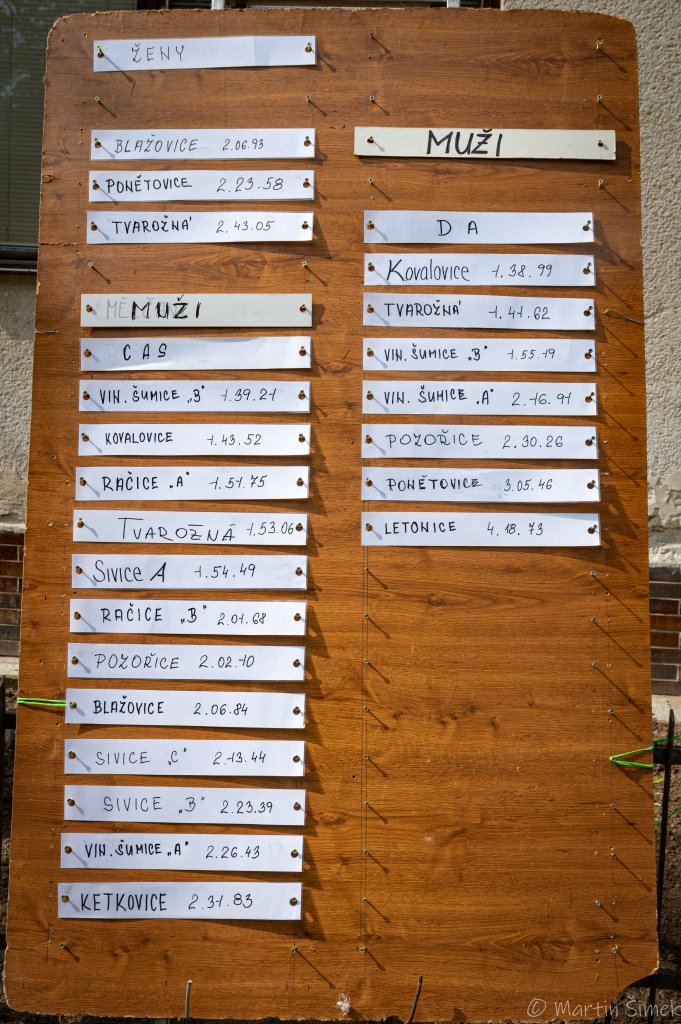 ŽENY
BLAŽOVICE 2.06.93
PONĚTOVICE 2.23.58
TVAROŽNÁ 2.43.05
MUŽI
ČAS
VIN. ŠUMICE „B" 1.39.21
KOVALOVICE 1.43.52
RAČICE „A" 1.51.75
TVAROŽNÁ 1.53.06
SIVICE A 1.54.49
RAČICE „B" 2.01.68
POZOŘICE 2.02.10
BLAŽOVICE 2.06.84
SIVICE „C" 2.13.44
SIVICE „B" 2.23.39
VIN. ŠUMICE „A" 2.26.43
KETKOVICE 2.31.83
MUŽI
DA
Kovalovice 1.38.99
TVAROŽNÁ 1.41.62
VIN. ŠUMICE „B" 1.55.19
VIN. ŠUMICE „A" 2.16.91
POZOŘICE 2.30.26
PONĚTOVICE 3.05.46
LETONICE 4.18.73
© Martin Šimek